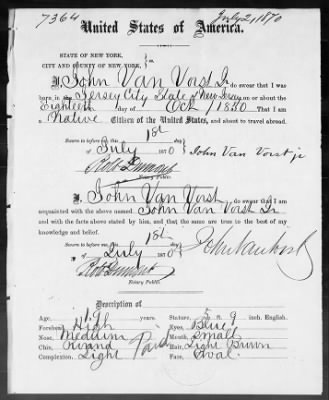 7364 July 2, 1870
United States of America.
STATE OF NEW YORK,
CITY AND COUNTY OF NEW YORK, } ss.
I, John Van Vorst Jr do swear that I was
born in the Jersey City State of New Jersey on or about the
Eighteenth day of Oct / 1850 That I am
a Native Citizen of the United States, and about to travel abroad.
Sworn to before me this 1st
day of July 1870 } John Van Vorst jr
Notary Public.
I, John Van Vorst do swear that I am
acquainted with the above named John Van Vorst Jr
and with the facts above stated by him, and that the same are true to the best of my
knowledge and belief.
Sworn to before me, this 1st
day of July 1870 } John Van Vorst
Notary Public.
Description of
Age, 19 years. Stature, 5 ft. 9 inch English.
Forehead, High Eyes, Blue
Nose, Medium Paid Mouth, Small
Chin, Round Hair, Light Brown
Complexion, Light Face, Oval